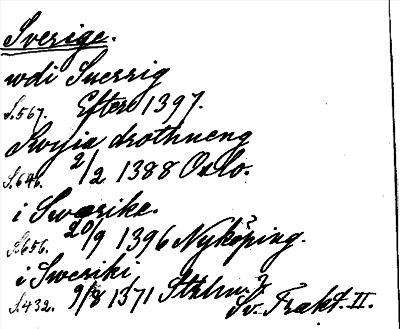 Sverige.
wdi Suerrig
S.567. Efter 1397.
Swyia drothneng
S.646. 2/2 1388 Oslo.
i Swerike.
S.656. 20/9 1396 Nyköping.
i Sweriki
S.432. 9/8 1371 Sthlm?
Sv. Trakt. II.